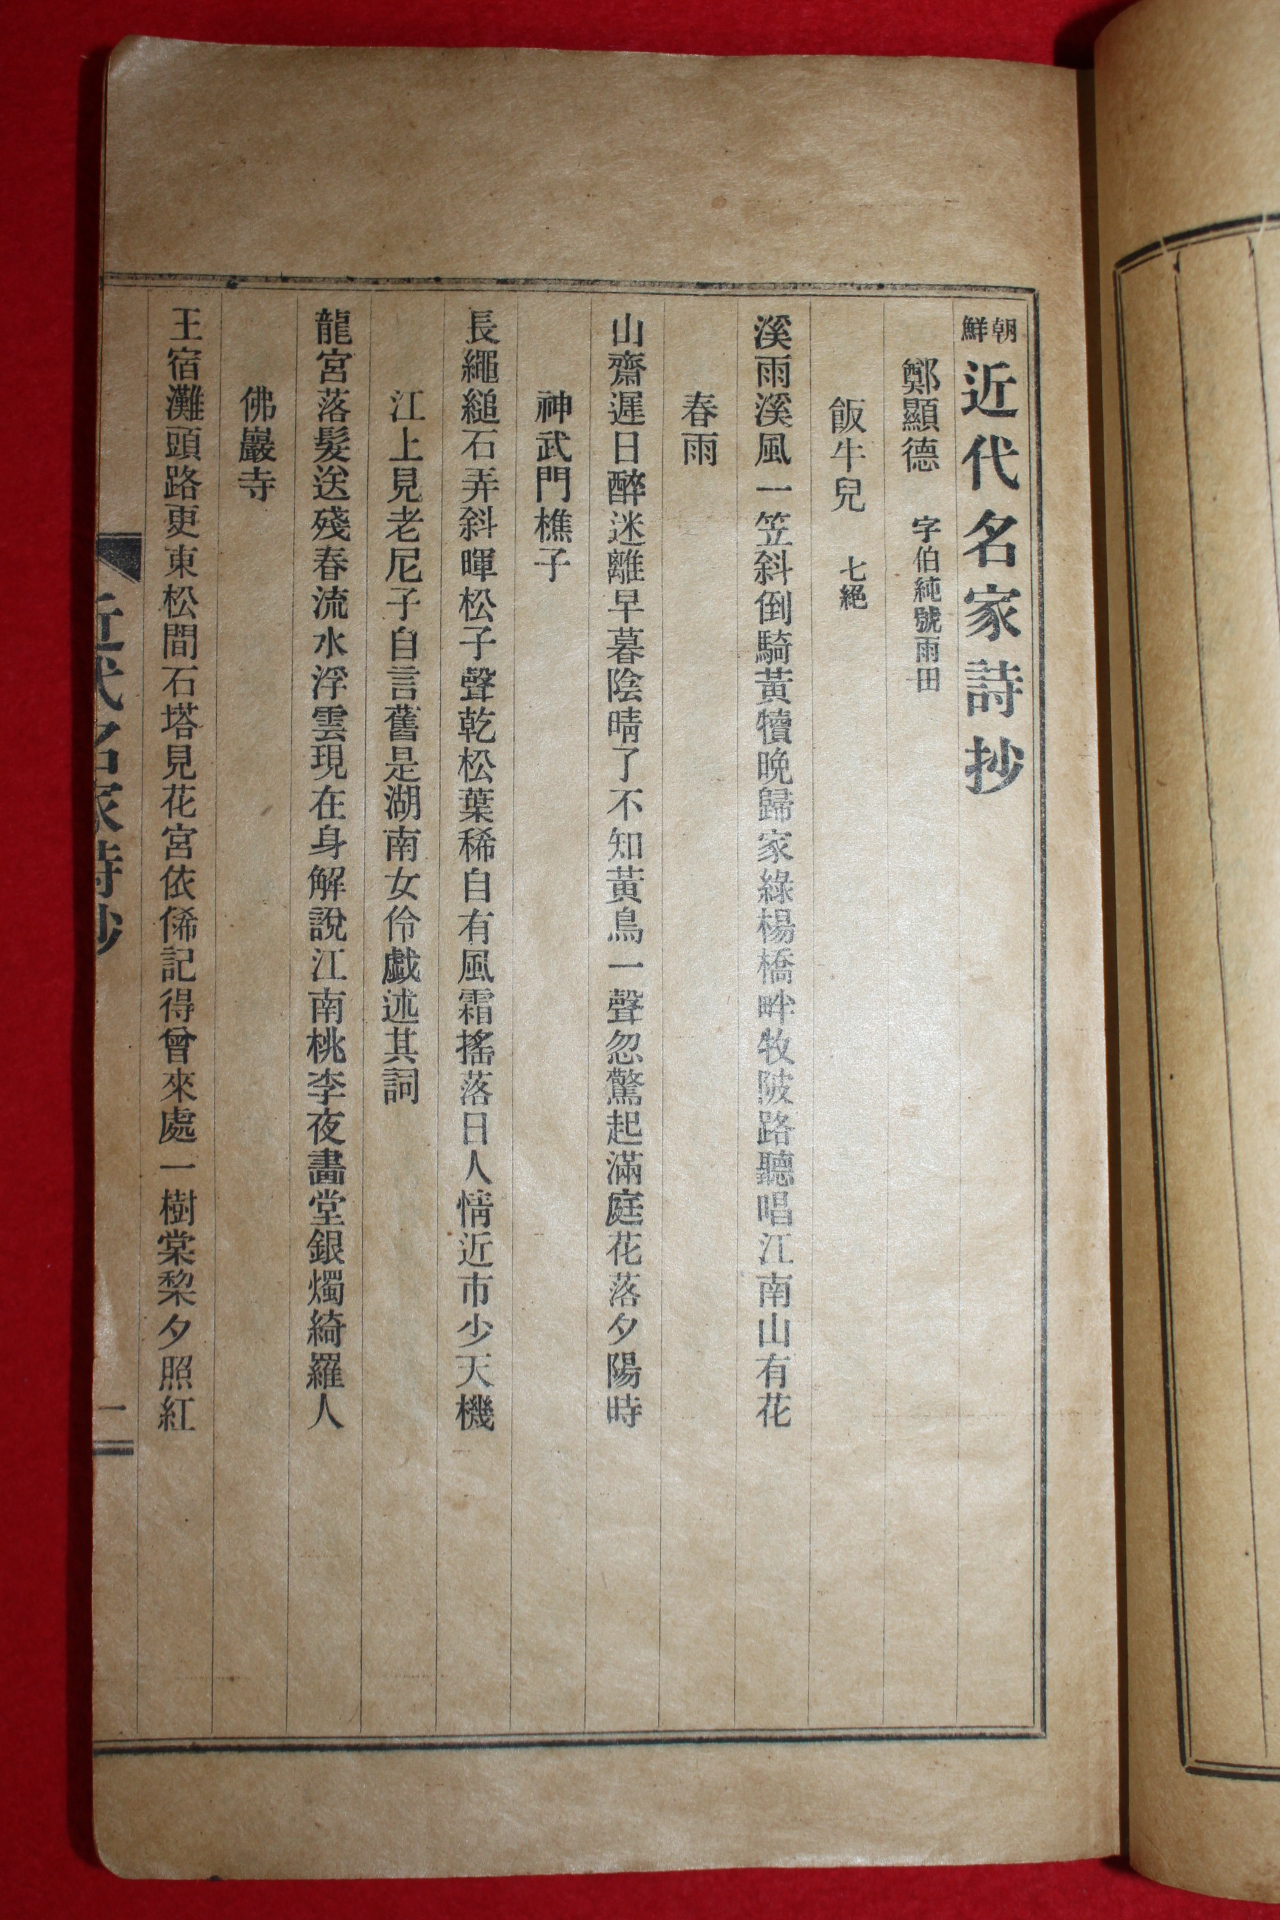 朝鮮近代名家詩抄
鄭顯德 字伯純號雨田
飯牛兒 七絕
溪雨溪風一笠斜倒騎黃犢晚歸家綠楊橋畔牧陂路聽唱江南山有花
春雨
山齋遲日醉迷離早暮陰晴了不知黃鳥一聲忽驚起滿庭花落夕陽時
神武門樵子
長繩縋石弄斜暉松子聲乾松葉稀自有風霜搖落日人情近市少天機
江上見老尼子自言舊是湖南女伶戱述其詞
龍宮落髮送殘春流水浮雲現在身解說江南桃李夜畵堂銀燭綺羅人
佛巖寺
王宿灘頭路更東松間石塔見花宮依俙記得曾來處一樹棠棃夕照紅
近代名家詩抄
一